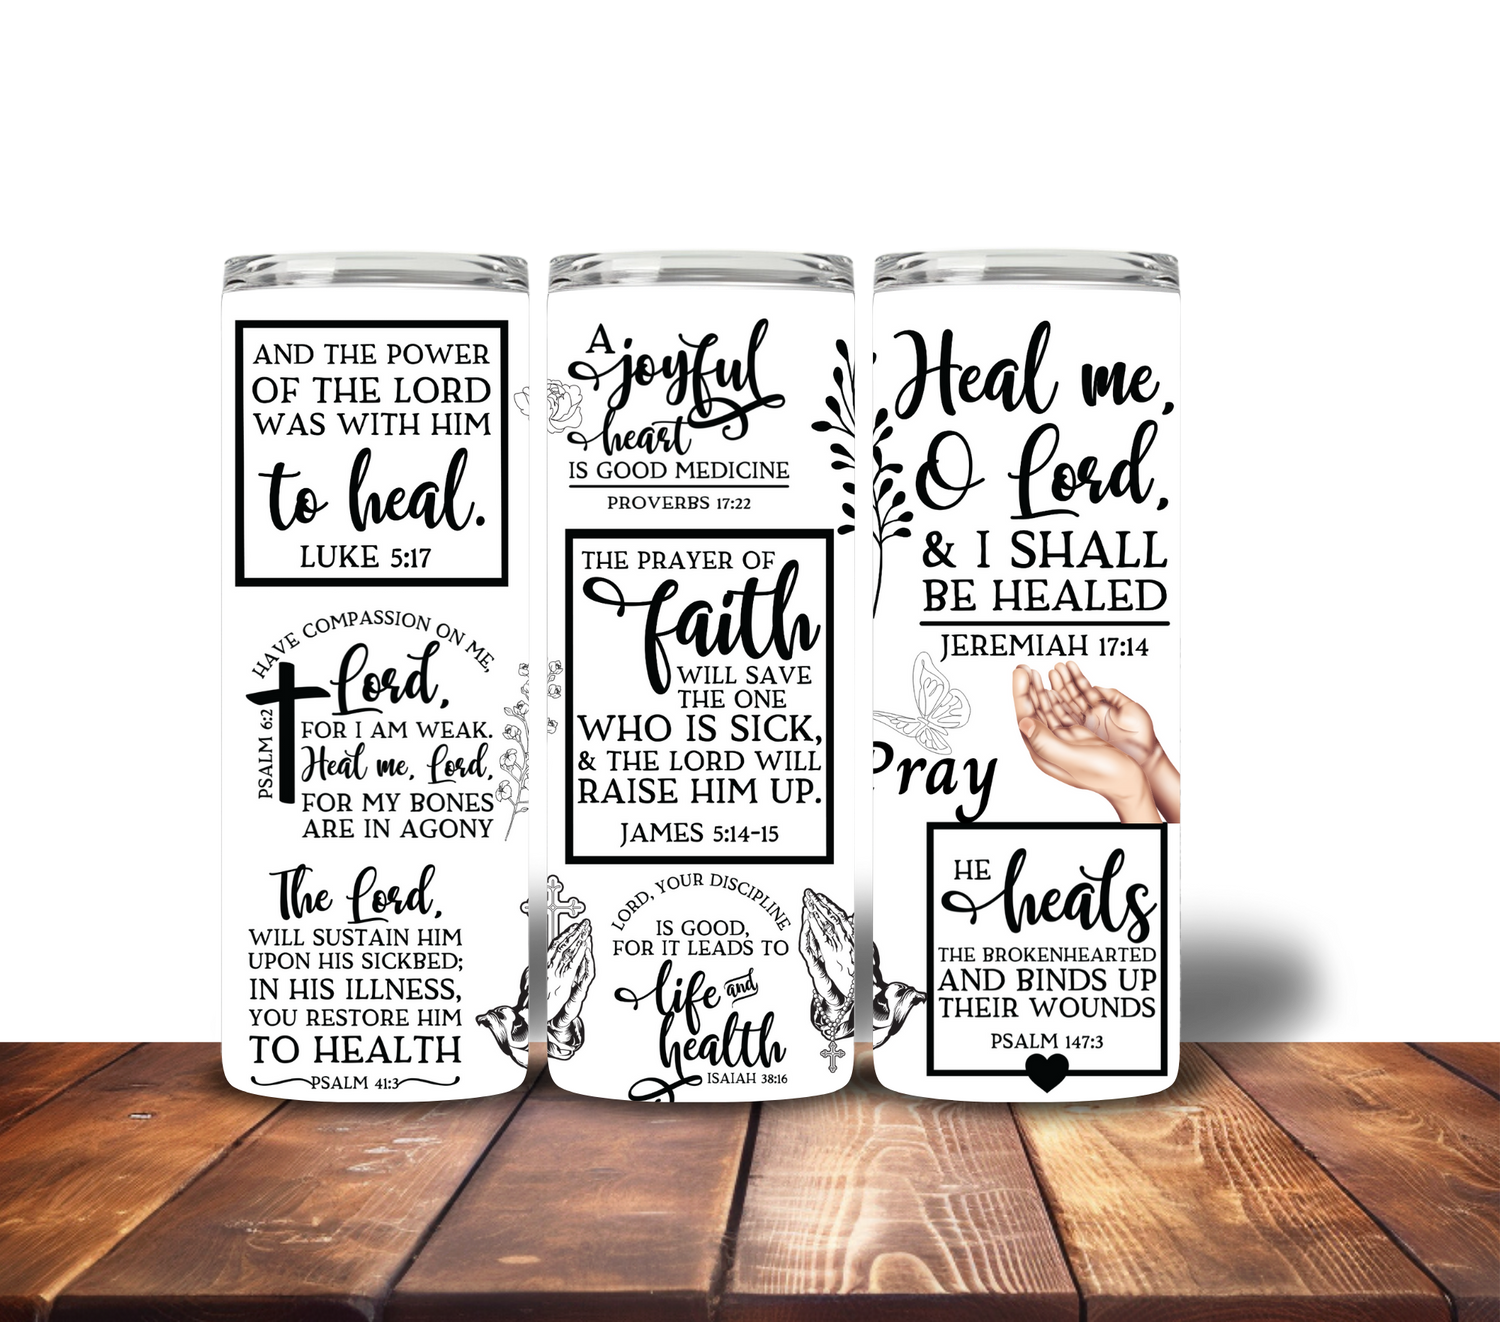 AND THE POWER
OF THE LORD
WAS WITH HIM
to heal.
LUKE 5:17
HAVE COMPASSION ON ME,
Lord,
FOR I AM WEAK.
Heal me, Lord,
FOR MY BONES
ARE IN AGONY
PSALM 6:2
The Lord,
WILL SUSTAIN HIM
UPON HIS SICKBED;
IN HIS ILLNESS,
YOU RESTORE HIM
TO HEALTH
PSALM 41:3
A joyful
heart
IS GOOD MEDICINE
PROVERBS 17:22
THE PRAYER OF
faith
WILL SAVE
THE ONE
WHO IS SICK,
& THE LORD WILL
RAISE HIM UP.
JAMES 5:14-15
LORD, YOUR DISCIPLINE
IS GOOD,
FOR IT LEADS TO
life and
health
ISAIAH 38:16
Heal me,
O Lord,
& I SHALL
BE HEALED
JEREMIAH 17:14
Pray
HE heals
THE BROKENHEARTED
AND BINDS UP
THEIR WOUNDS
PSALM 147:3